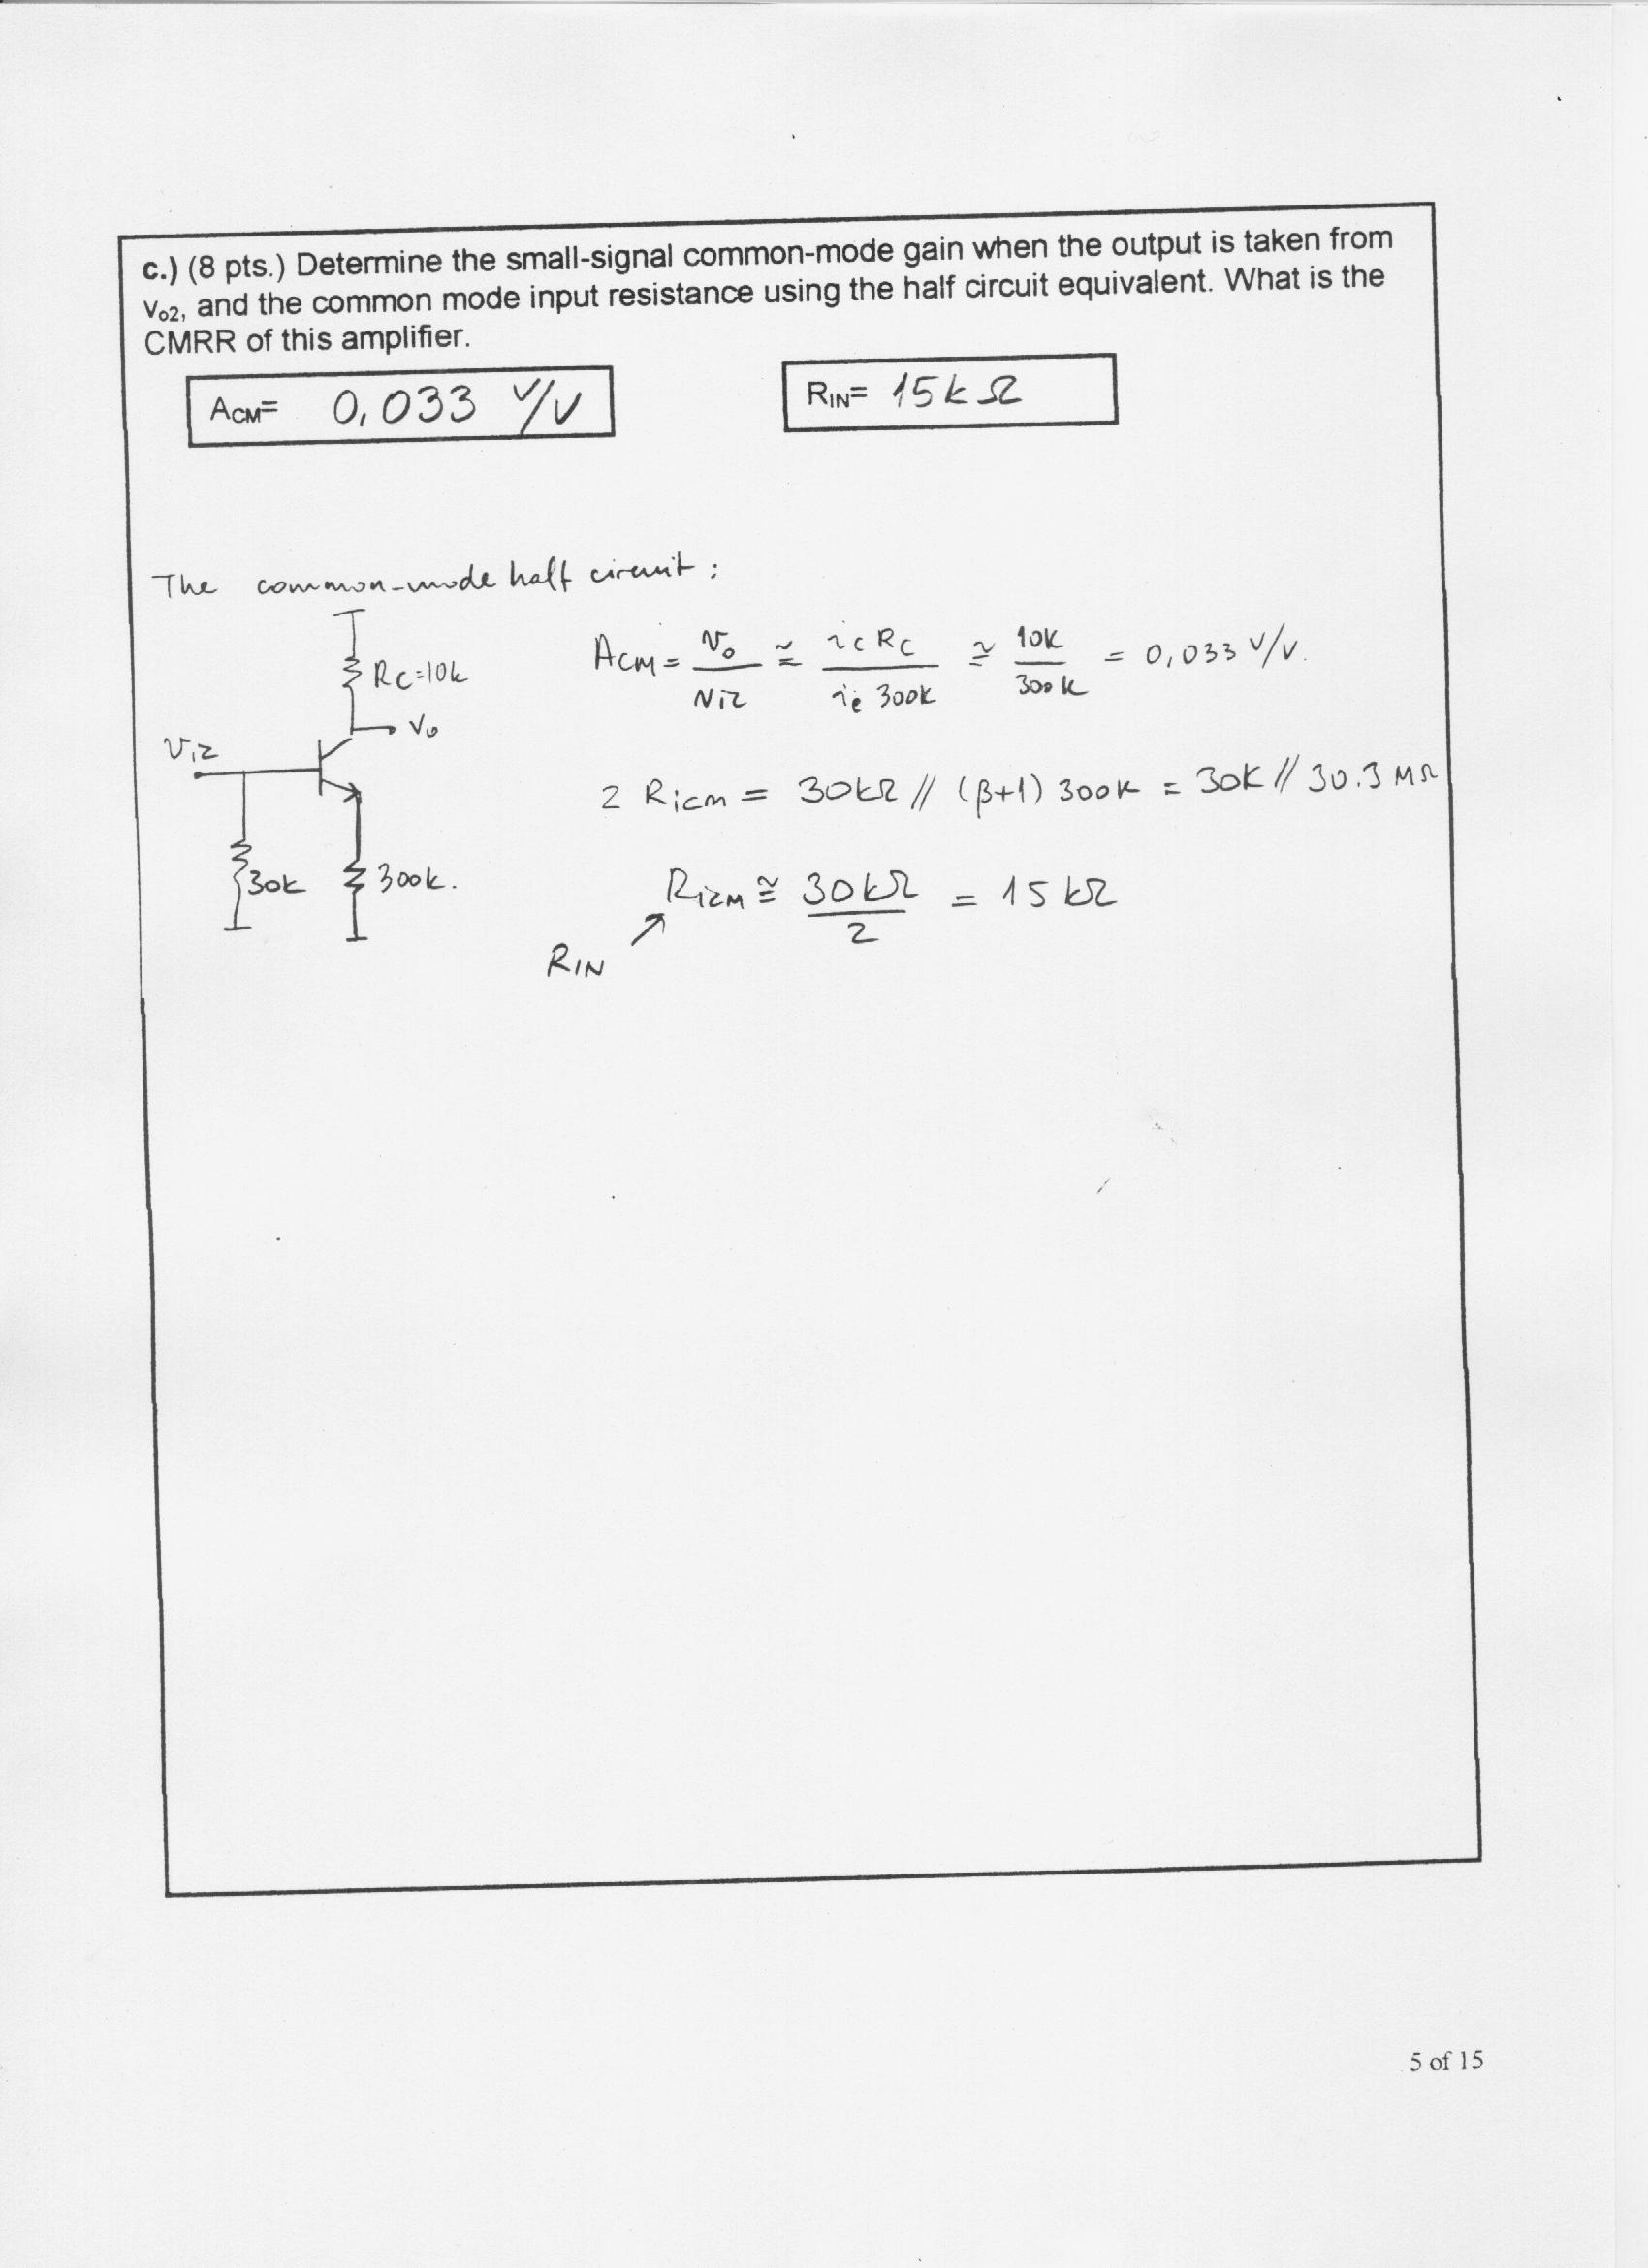 c.) (8 pts.) Determine the small-signal common-mode gain when the output is taken from
Vo2, and the common mode input resistance using the half circuit equivalent. What is the
CMRR of this amplifier.
ACM= 0,033 V/V
RIN= 15kΩ
The common-mode half circuit :
RC=10k
Vo
Vi2
30k
300k.
ACM = vo/vi2 ≅ ic RC / ie 300k ≅ 10k/300k = 0,033 V/V.
2 Ricm = 30kΩ // (β+1) 300k = 30k // 30.3 MΩ
Ricm ≅ 30kΩ/2 = 15 kΩ
RIN
5 of 15